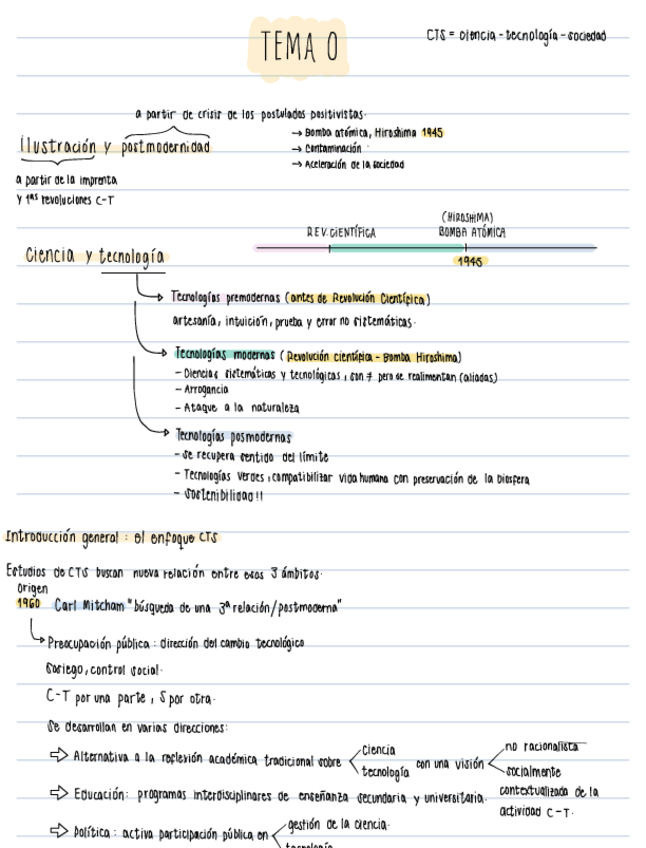 TEMA 0
CTS = ciencia - tecnología - sociedad
a partir de crisis de los postulados positivistas.
Ilustración y postmodernidad
→ Bomba atómica, Hiroshima 1945
→ Contaminación
→ Aceleración de la sociedad
a partir de la imprenta
y 1as revoluciones C-T
REV. CIENTÍFICA
(HIROSHIMA)
BOMBA ATÓMICA
1945
Ciencia y tecnología
Tecnologías premodernas (antes de Revolución Científica)
artesanía, intuición, prueba y error no sistemáticas.
Tecnologías modernas (Revolución científica - Bomba Hiroshima)
- Ciencias sistemáticas y tecnológicas, son ≠ pero se realimentan (aliadas)
- Arrogancia
- Ataque a la naturaleza
Tecnologías posmodernas
- se recupera sentido del límite
- Tecnologías verdes, compatibilizar vida humana con preservación de la biosfera
- Sostenibilidad!!
Introducción general: el enfoque CTS
Estudios de CTS buscan nueva relación entre esos 3 ámbitos.
Origen
1960 Carl Mitcham "búsqueda de una 3ª relación/postmoderna"
Preocupación pública: dirección del cambio tecnológico
Sosiego, control social.
C-T por una parte, S por otra.
Se desarrollan en varias direcciones:
⇒ Alternativa a la reflexión académica tradicional sobre
ciencia
tecnología
con una visión
no racionalista
socialmente
contextualizada de la
actividad C-T.
⇒ Educación: programas interdisciplinares de enseñanza secundaria y universitaria.
⇒ Política: activa participación pública en
gestión de la ciencia.
tecnología